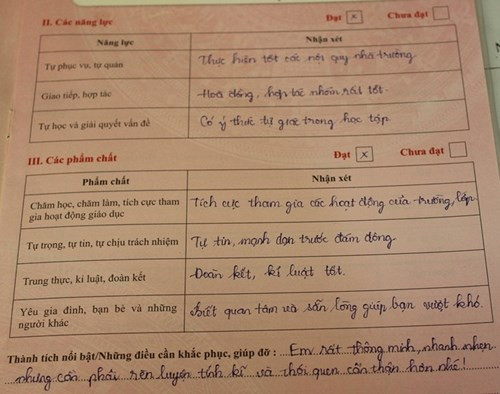 II. Các năng lực
Đạt x Chưa đạt
Năng lực Nhận xét
Tự phục vụ, tự quản Thực hiện tốt các nội quy nhà trường.
Giao tiếp, hợp tác Hoà đồng, hợp tác nhóm rất tốt.
Tự học và giải quyết vấn đề Có ý thức tự giác trong học tập
III. Các phẩm chất
Đạt x Chưa đạt
Phẩm chất Nhận xét
Chăm học, chăm làm, tích cực tham Tích cực tham gia các hoạt động của trường, lớp.
gia hoạt động giáo dục
Tự trọng, tự tin, tự chịu trách nhiệm Tự tin, mạnh dạn trước đám đông.
Trung thực, kỉ luật, đoàn kết Đoàn kết, kỉ luật tốt.
Yêu gia đình, bạn bè và những Biết quan tâm và sẵn lòng giúp bạn vượt khó.
người khác
Thành tích nổi bật/Những điều cần khắc phục, giúp đỡ : Em rất thông minh, nhanh nhẹn
nhưng cần phải rèn luyện tính kĩ và thói quen cẩn thận hơn nhé!